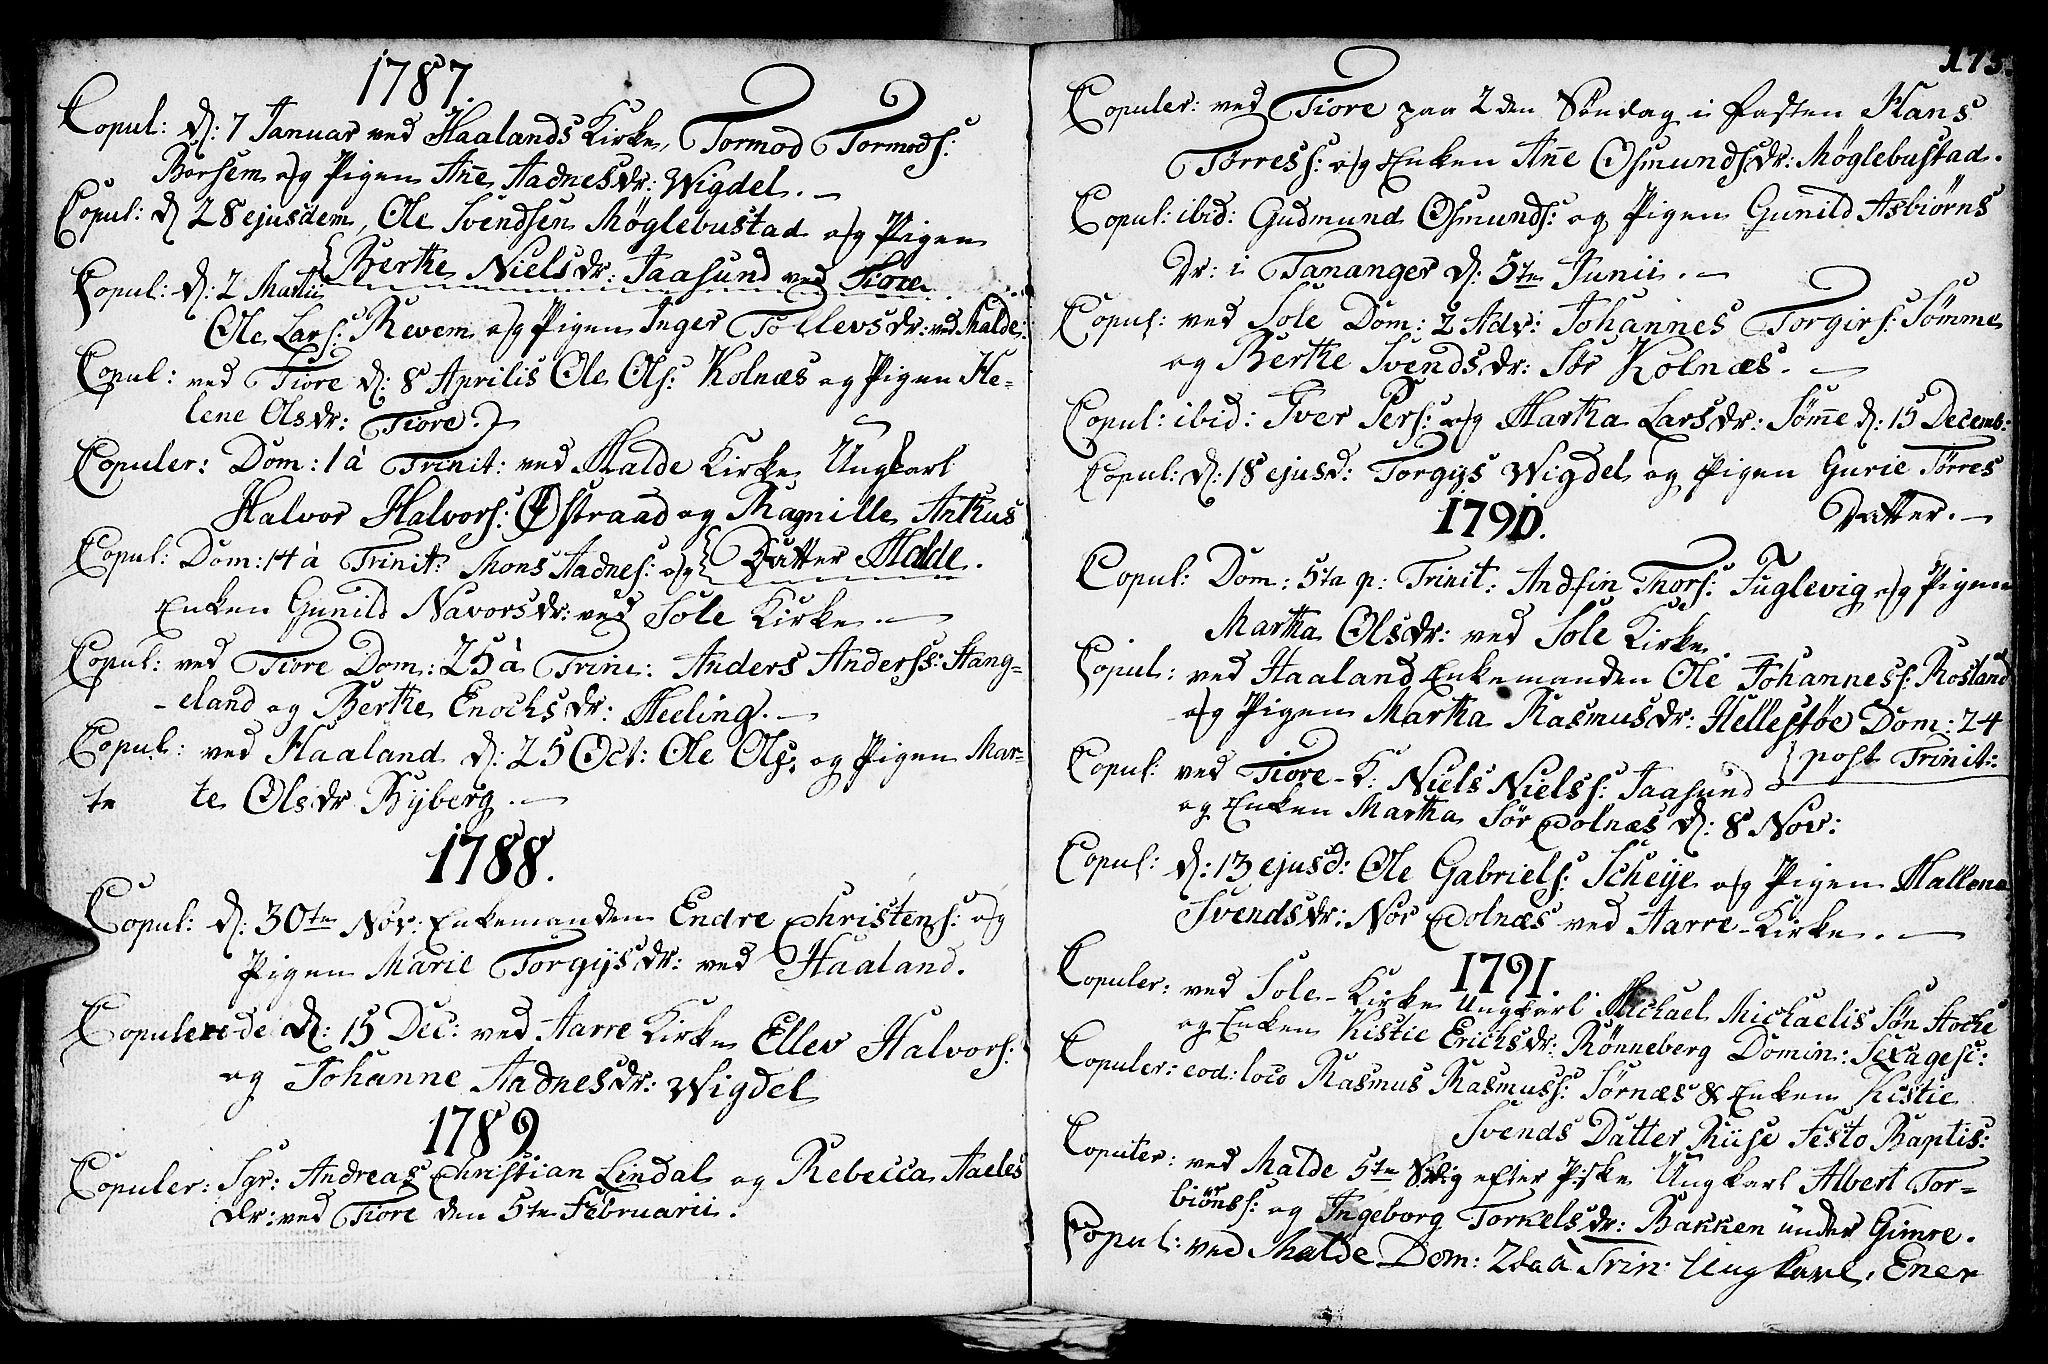 1787.
Copul: d: 7 Januar ved Haalands Kirke, Tormod Tormods:
Borsem og Pigen Añe Aadnesdr: Wigdel.
Copul: d 28 ejusdem, Ole Svendsen Møglebustad og Pigen
Berthe Nielsdr: Jaasund ved Tiore
Copul: d: 2 Martii
Ole Lars: Revem og Pigen Inger Tollevsdr: ved Malde:
Copul: ved Tiore d: 8 Aprilis Ole Ols: Kolnæs og Pigen He-
lene Olsdr: Tiore.
Copuler: Dom: 1 à Trinit: ved Malde Kirke Ungkarl
Halvor Halvors: Østraad og Magnille Ankus
Datter Malde.
Copul: Dom: 14 à Trinit: Mons Aadnes: og
Enken Gunild Navorsdr: ved Sole Kirke.
Copul: ved Tiore Dom: 25 à Trini: Anders Anderss: Hang-
-eland og Berthe Enochsdr: Meeling.
Copul: ved Haaland d: 25 Oct: Ole Ols: og Pigen Mar-
te te Olsdr Byberg.
1788.
Copul: d: 30te Nov: Enkemanden Endre Christens: og
Pigen Marie Torgysdr: ved Haaland.
Copulerede d: 15 Dec: ved Aarre Kirke Ellev Halvors:
og Johanne Aadnesdr: Wigdel
1789
Copuler: Sgr: Andreas Christian Lindal og Rebecca Aaeles
dr: ved Tiore den 5te Februarii.
173.
Copuler: ved Tiore paa 2den Søndag i Fasten Hans
Tørress: og Enken Añe Osmundsdr: Møglebustad.
Copul: ibid: Gudmund Osmunds: og Pigen Gunild Asbiørns
dr: i Tananger d: 5te Junii.
Copul: ved Sole Dom: 2 Adv: Johannes Torgirs: Sømme
og Berthe Svendsdr: Sør Kolnæs.
Copul: ibid: Iver Pers: og Martha Larsdr: Søm̃e d: 15 Decemb:
Copul: d: 18 ejusd: Torgys Wigdel og Pigen Gurie Tørres
Datter.
1790.
Copul: Dom: 5ta p: Trinit: Andfin Thors: Fuglevig og Pigen
Martha Olsdr: ved Sole Kirke
Copul: ved Haaland Enkemanden Ole Johanness: Rosland
og Pigen Martha Rasmusdr: Hellestøe Dom: 24
post Trinit:
Copul: ved Tiore-K: Niels Nielss: Jaasund
og Enken Martha Sør Colnæs d: 8 Nov:
Copul: d: 13 ejusd: Ole Gabriels: Scheije og Pigen Mallene
Svendsdr: Nor Colnæs ved Aarre-Kirke.
1791.
Copuler: ved Sole-Kirke Ungkarl Michael Michaelis Søn Hocke
og Enken Kistie Erichsdr: Rønneberg Domin: Sexages:
Copuler: eod: loco Rasmus Rasmuss: Sørnæs & Enken Kistie
Svends Datter Riise Festo Baptis:
Copuler: ved Malde 5te Sødg efter Paske Ungkarl Albert Tor-
biørnss: og Ingeborg Torkelsdr: Bakken under Gimre.
Copul: ved Malde Dom: 2da à Trin: Ungkarl, Ener